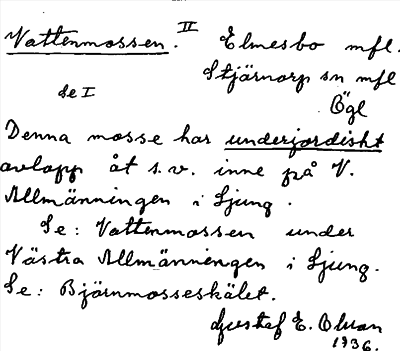 Vattenmossen. II Elmesbo mfl.
Stjärnorp sn mfl
Se I
Ögl
Denna mosse har underjordiskt
avlopp åt s.v. inne på V.
Allmänningen i Ljung.
Se: Vattenmossen under
Västra Allmänningen i Ljung.
Se: Björnmosseskälet.
Gustaf E. Olsson
1936.